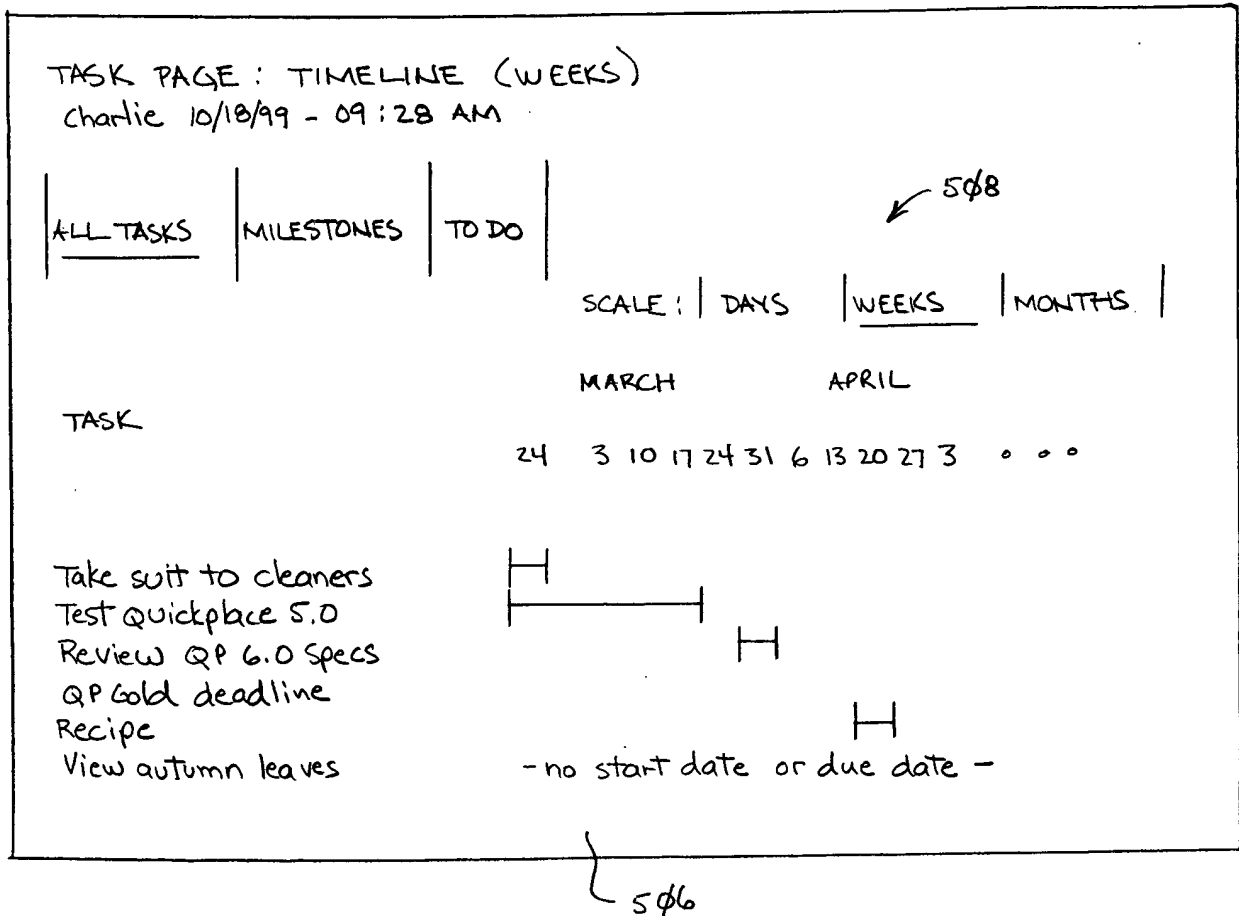 TASK PAGE: TIMELINE (WEEKS)
Charlie 10/18/99 - 09:28 AM
508
ALL TASKS | MILESTONES | TO DO
SCALE: | DAYS | WEEKS | MONTHS |
MARCH APRIL
TASK
24 3 10 17 24 31 6 13 20 27 3 • • •
Take suit to cleaners
Test Quickplace 5.0
Review QP 6.0 Specs
QP Gold deadline
Recipe
View autumn leaves - no start date or due date -
506